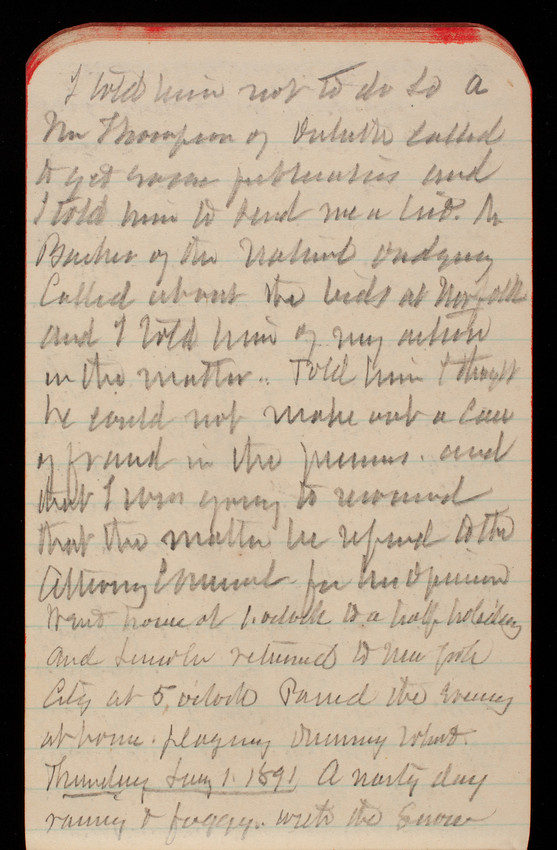 I told him not to do so a
Mr Thompson of Duluth called
to get some publications and
I told him to send me a list. Mr
Barker of the National
Called about the bids at Norfolk
and I told him of my action
in the matter. Told him I thought
he could not make out a case
of fraud in the premises. and
that I was going to recommend
that the matter be referred to the
Attorney General for his opinion
Went home at 1 oclock to a half holiday
and Lincoln returned to New York
City at 5, oclock Passed the evening
at home. playing dummy whist.
Thursday Jany 1. 1891 A nasty day
rainy & foggy. with the